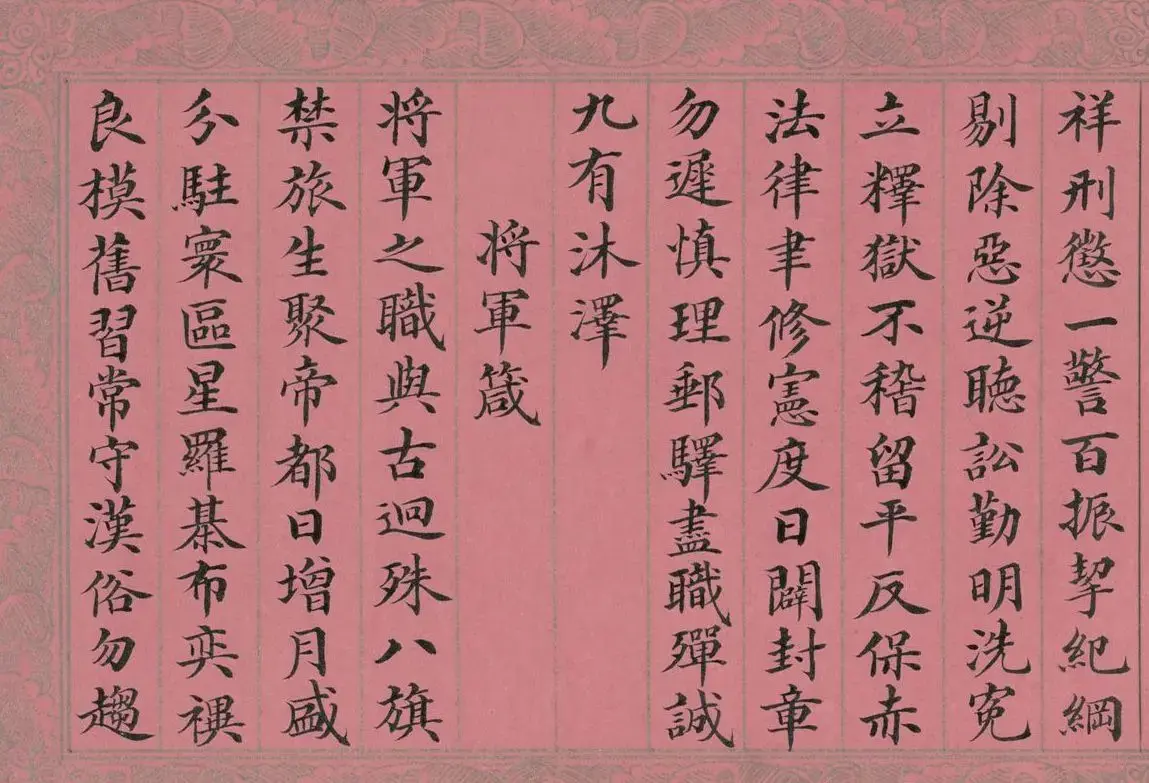 祥刑懲一警百振挈紀綱
剔除惡逆聽訟勤明洗冤
立釋獄不稽留平反保赤
法律聿修憲度日闢封章
勿遲慎理郵驛盡職殫誠
九有沐澤
將軍箴
將軍之職與古迥殊八旗
禁旅生聚帝都日增月盛
分駐寰區星羅棊布奕禩
良模舊習常守漢俗勿趨